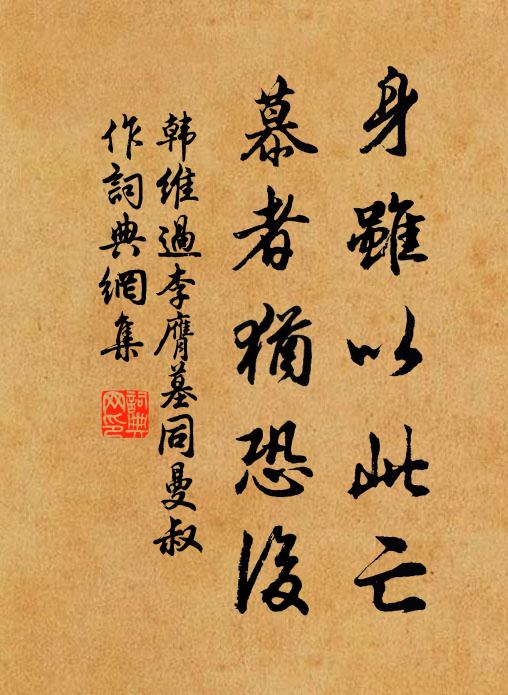 身雖以此亡
慕者猶恐後
韓維過李膺墓同曼叔
作詞典網集
詞典
网印